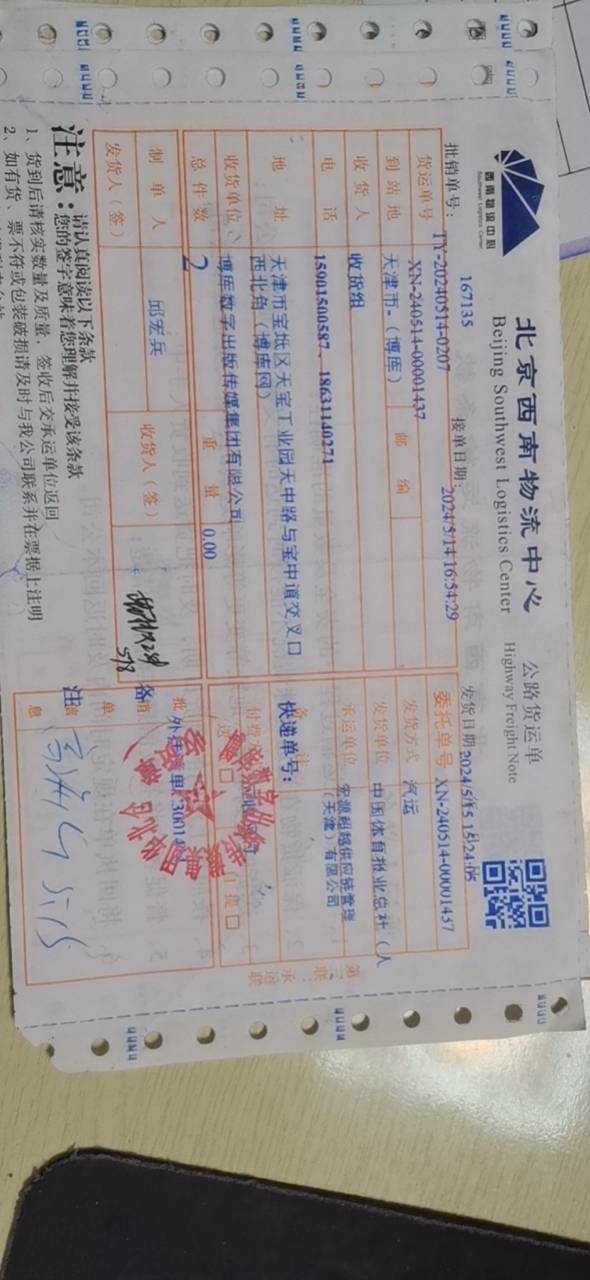 西南物流中心
Southwest Logistics Center
北京西南物流中心
公路货运单
Beijing Southwest Logistics Center
Highway Freight Note
167135
接单日期: 2024/5/14 16:54:29
发货日期 2024/5/15 15:24:05
批销单号: TY-20240514-0207
货运单号 XN-240514-00001437
委托单号 XN-240514-00001437
到站地 天津市-（博库） 邮编
发货方式 汽运
收货人 收货组
发货单位 中国体育报业总社（人
电话 15901500587、18631140271
承运单位
（天津）有限公司
地址 天津市宝坻区天宝工业园天中路与宝中道交叉口
西北角（博库网）
快递单号:
收货单位 博库数字出版传媒集团有限公司
付费
自提 口
总件数 2 重量 0.00
制单人 邱宏兵 收货人（签）
5/8
发货人（签）
第三联：承运联
注意:
请认真阅读以下条款
您的签字意味着您理解并接受该条款
1、货到后请核实数量及质量，签收后交承运单位返回
2、如有货、票不符或包装破损请及时与我公司联系并在票据上注明